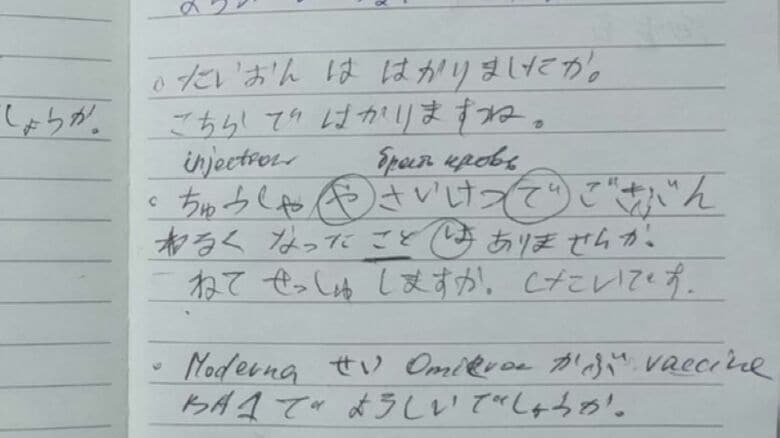 しょうか。
たいおん は はかりましたか。
こちらで はかりますね。
injection брать кровь
ちゅうしゃ や さいけつ で ごきぶん
わるく なった こと は ありませんか。
ねて せっしゅ しますか。 したいです.
Moderna せい Omikron かぶ vaccine
BA1 で よろしいでしょうか。